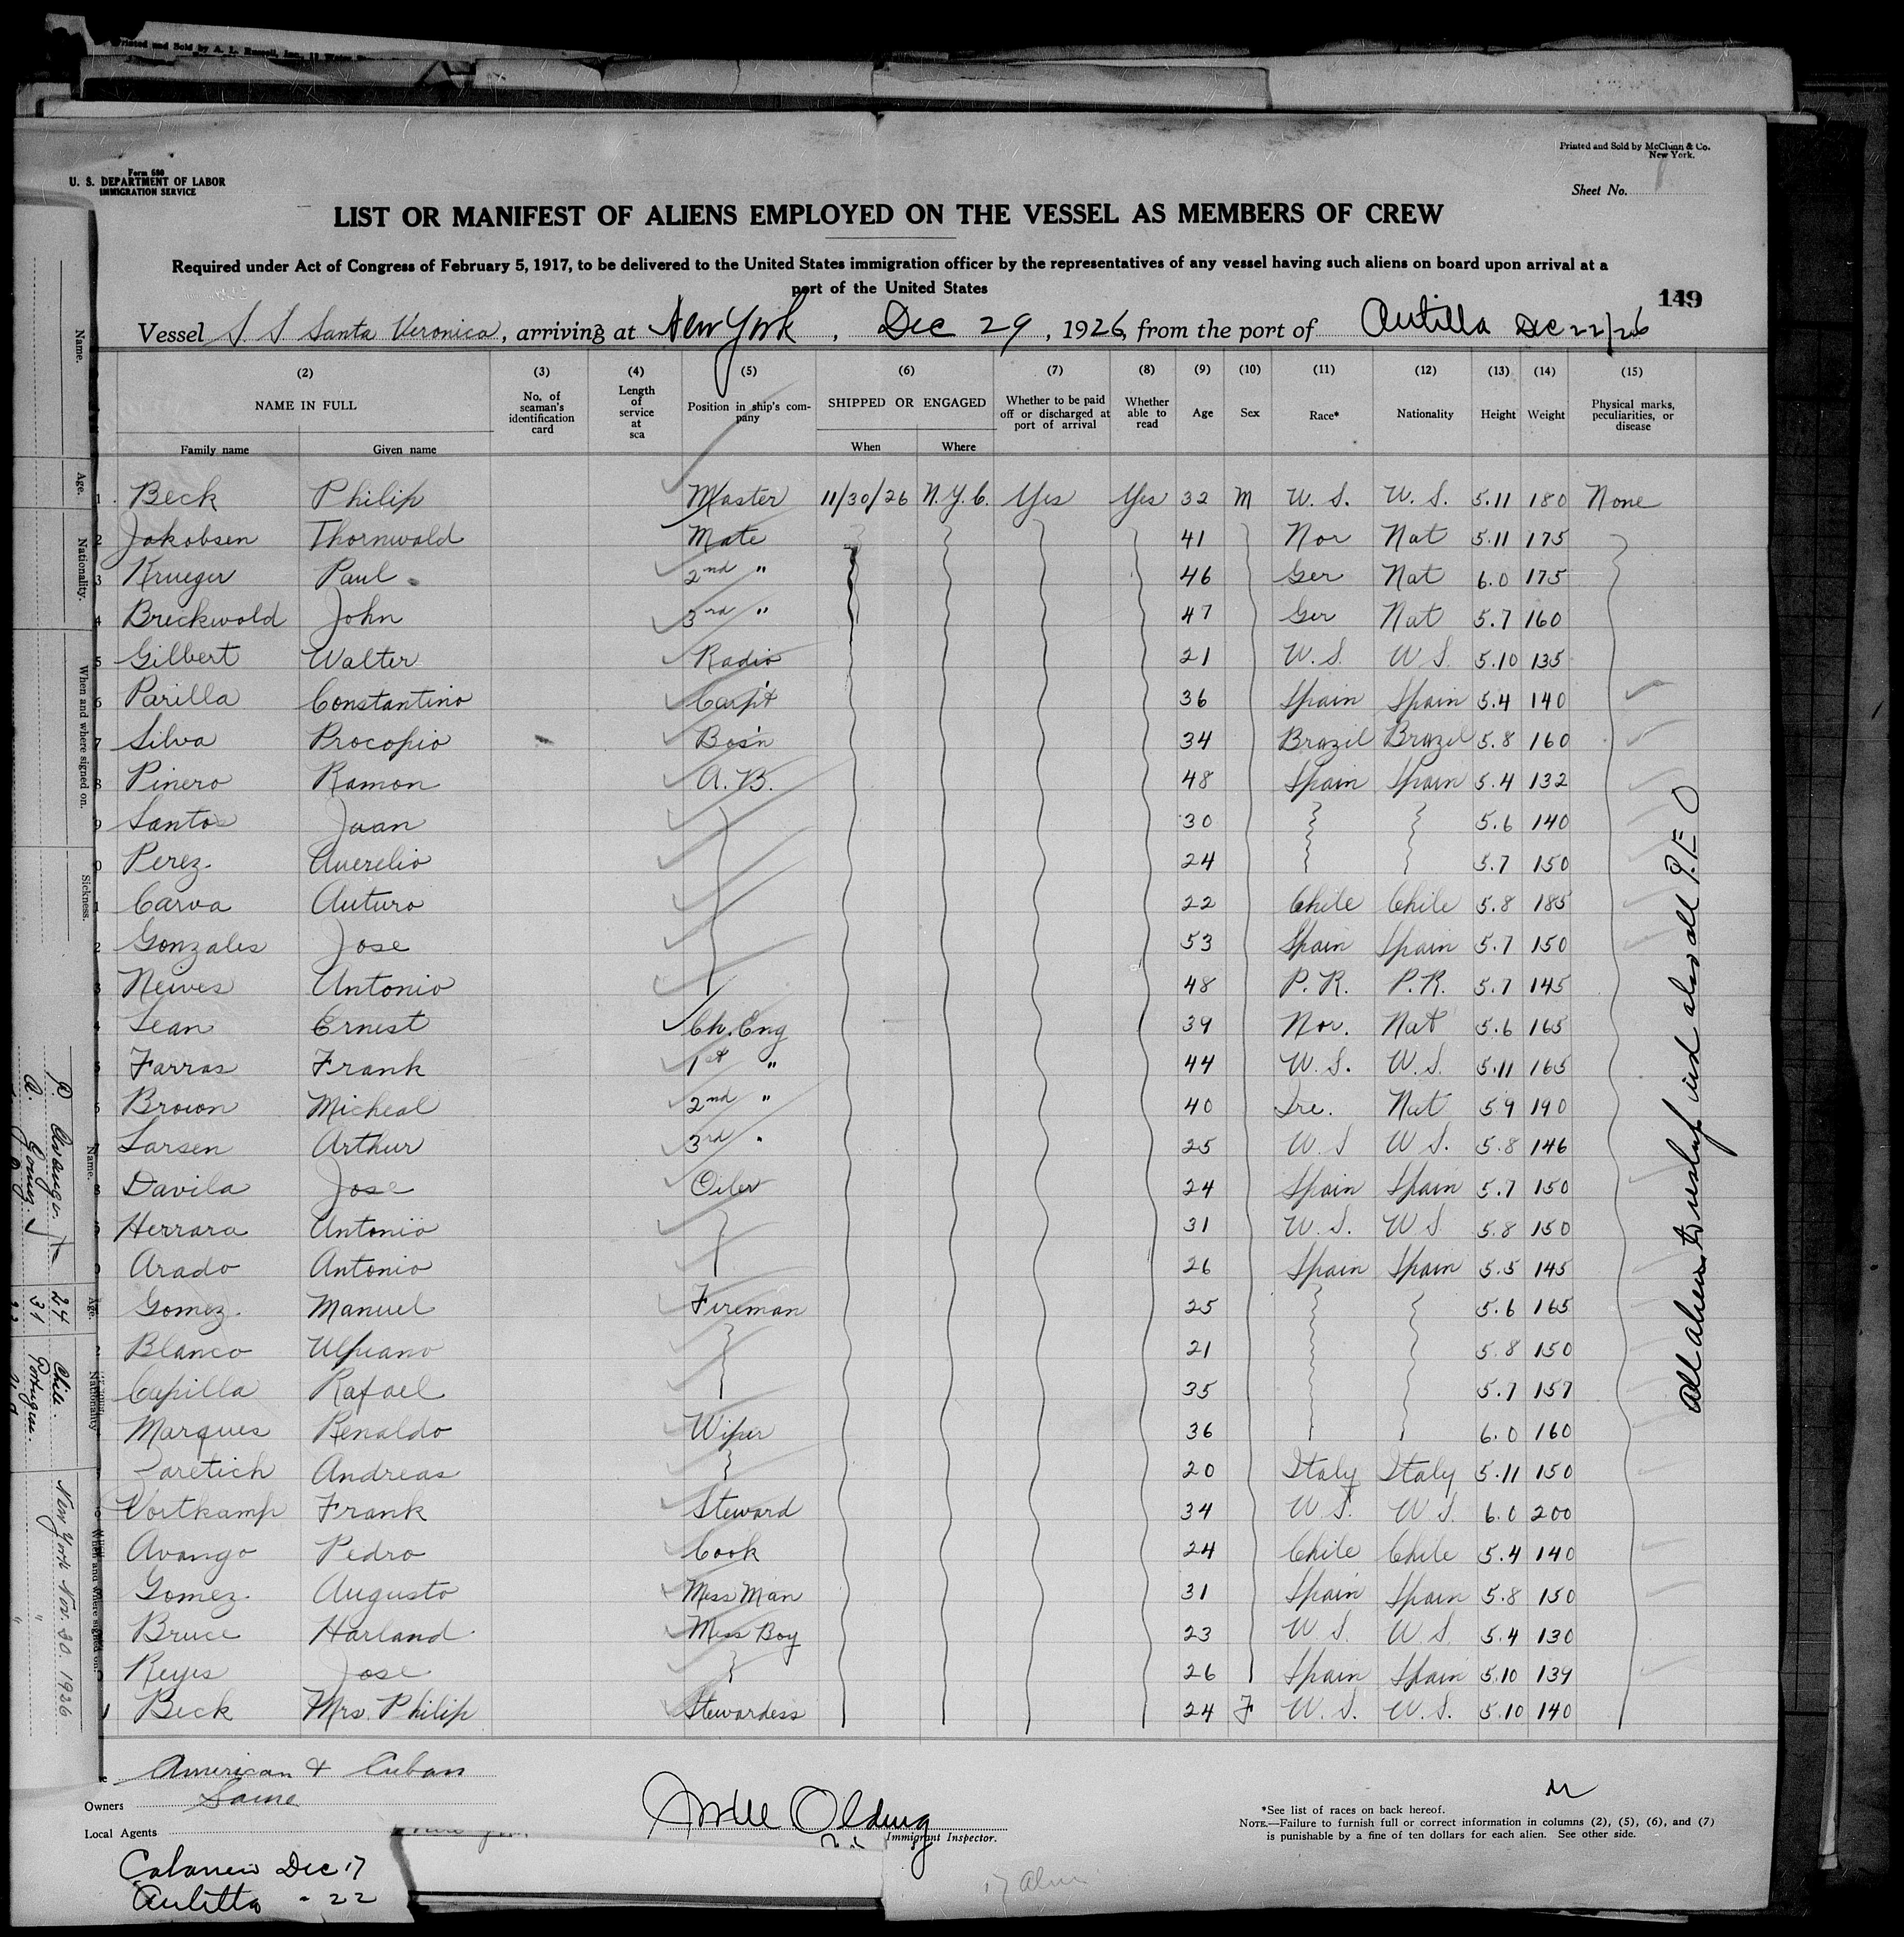 Printed and Sold by A. L. Russell, Inc.,
Printed and Sold by McClunn & Co.
New York.
Form 680
U. S. DEPARTMENT OF LABOR
IMMIGRATION SERVICE
Sheet No.
LIST OR MANIFEST OF ALIENS EMPLOYED ON THE VESSEL AS MEMBERS OF CREW
Required under Act of Congress of February 5, 1917, to be delivered to the United States immigration officer by the representatives of any vessel having such aliens on board upon arrival at a
port of the United States
149
Vessel S S Santa Veronica, arriving at New York, Dec 29, 1926, from the port of Antilla Dec 22/26
(2) (3) (4) (5) (6) (7) (8) (9) (10) (11) (12) (13) (14) (15)
NAME IN FULL No. of seaman's identification card Length of service at sea Position in ship's company SHIPPED OR ENGAGED Whether to be paid off or discharged at port of arrival Whether able to read Age Sex Race* Nationality Height Weight Physical marks, peculiarities, or disease
Family name Given name When Where
1 Beck Philip Master 11/30/26 N.Y.C. Yes Yes 32 M U.S. U.S. 5.11 180 None
2 Jakobsen Thornwald Mate 41 Nor Nat 5.11 175
3 Krueger Paul 2nd " 46 Ger Nat 6.0 175
4 Breckwold John 3rd " 47 Ger Nat 5.7 160
5 Gilbert Walter Radio 21 U.S. U.S. 5.10 135
6 Parilla Constantino Carp't 36 Spain Spain 5.4 140
7 Silva Procopio Bos'n 34 Brazil Brazil 5.8 160
8 Pinero Ramon A.B. 48 Spain Spain 5.4 132
9 Santos Juan 30 5.6 140
0 Perez Auerelio 24 5.7 150
1 Carva Auturo 22 Chile Chile 5.8 185
2 Gonzales Jose 53 Spain Spain 5.7 150
3 Neives Antonio 48 P.R. P.R. 5.7 145
4 Lean Ernest Ch. Eng 39 Nor. Nat 5.6 165
5 Farras Frank 1st " 44 U.S. U.S. 5.11 165
6 Brown Micheal 2nd " 40 Ire. Nat 5.9 190
7 Larsen Arthur 3rd " 25 U.S. U.S. 5.8 146
8 Davila Jose Oiler 24 Spain Spain 5.7 150
Herrara Antonio 31 U.S. U.S. 5.8 150
Arado Antonio 26 Spain Spain 5.5 145
Gomez Manuel Fireman 25 5.6 165
Blanco Ulpiano 21 5.8 150
Capilla Rafael 35 5.7 157
Marques Renaldo Wiper 36 6.0 160
Andreas 20 Italy Italy 5.11 150
Vortkamp Frank Steward 34 U.S. U.S. 6.0 200
Avango Pedro Cook 24 Chile Chile 5.4 140
Gomez Augusto Mess Man 31 Spain Spain 5.8 150
Bruce Harland Mess Boy 23 U.S. U.S. 5.4 130
Reyes Jose 26 Spain Spain 5.10 139
1 Beck Mrs. Philip Stewardess 24 F U.S. U.S. 5.10 140
All aliens to reship
American & Cuban
Owners Same
Local Agents
Immigrant Inspector.
*See list of races on back hereof.
NOTE.—Failure to furnish full or correct information in columns (2), (5), (6), and (7)
is punishable by a fine of ten dollars for each alien. See other side.
Dec 17
- 22
Name.
Age.
Nationality.
When and where signed on.
Sickness.
Name.
Age.
Nationality
When and where signed on.
P. Avango. 24 Chile. New York Nov. 30 1926
A. Gomez. 31 Portugese. "